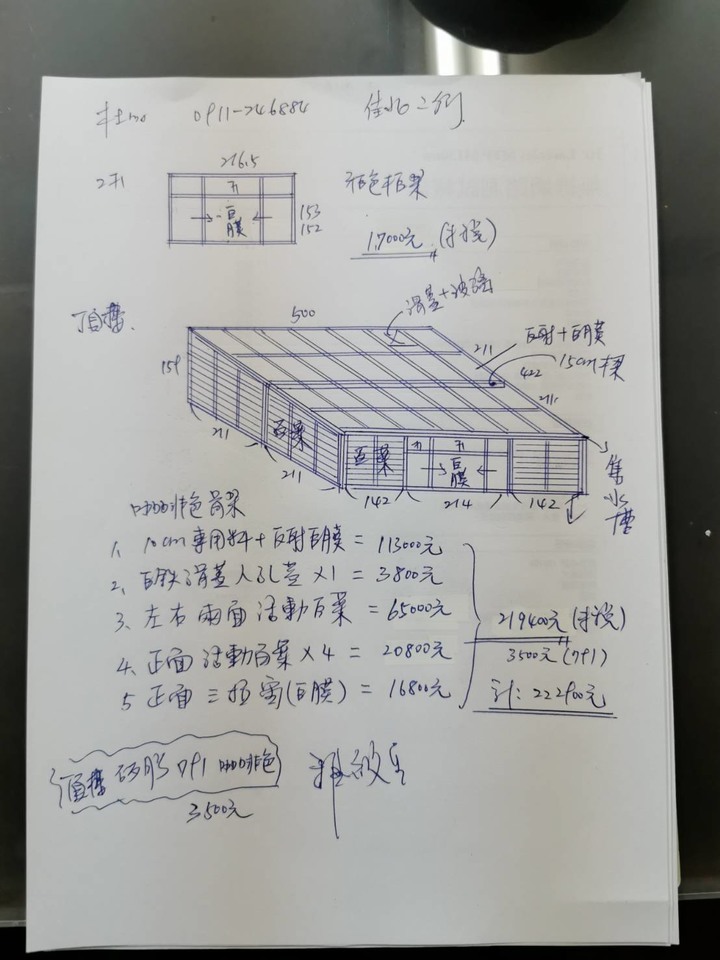 0911-746884
2カ1
216.5
白膜
153
152
17000元 (未稅)
頂擋
500
滑蓋+玻璃
211
反射+白膜
422
15cm樑
159
211
211
百葉
211
百葉
白膜
142
214
142
集水槽
咖啡色骨架
1. 10cm專用料+反射白膜 = 113000元
2. 白鉄滑蓋人孔蓋×1 = 3800元
3、左右兩面活動百葉 = 65000元
4、正面活動百葉×4 = 20800元
5 正面三拉窗(白膜) = 16800元
219400元(未稅)
3500元(791)
計: 222900元
頂擋矽胶791咖啡色
3500元